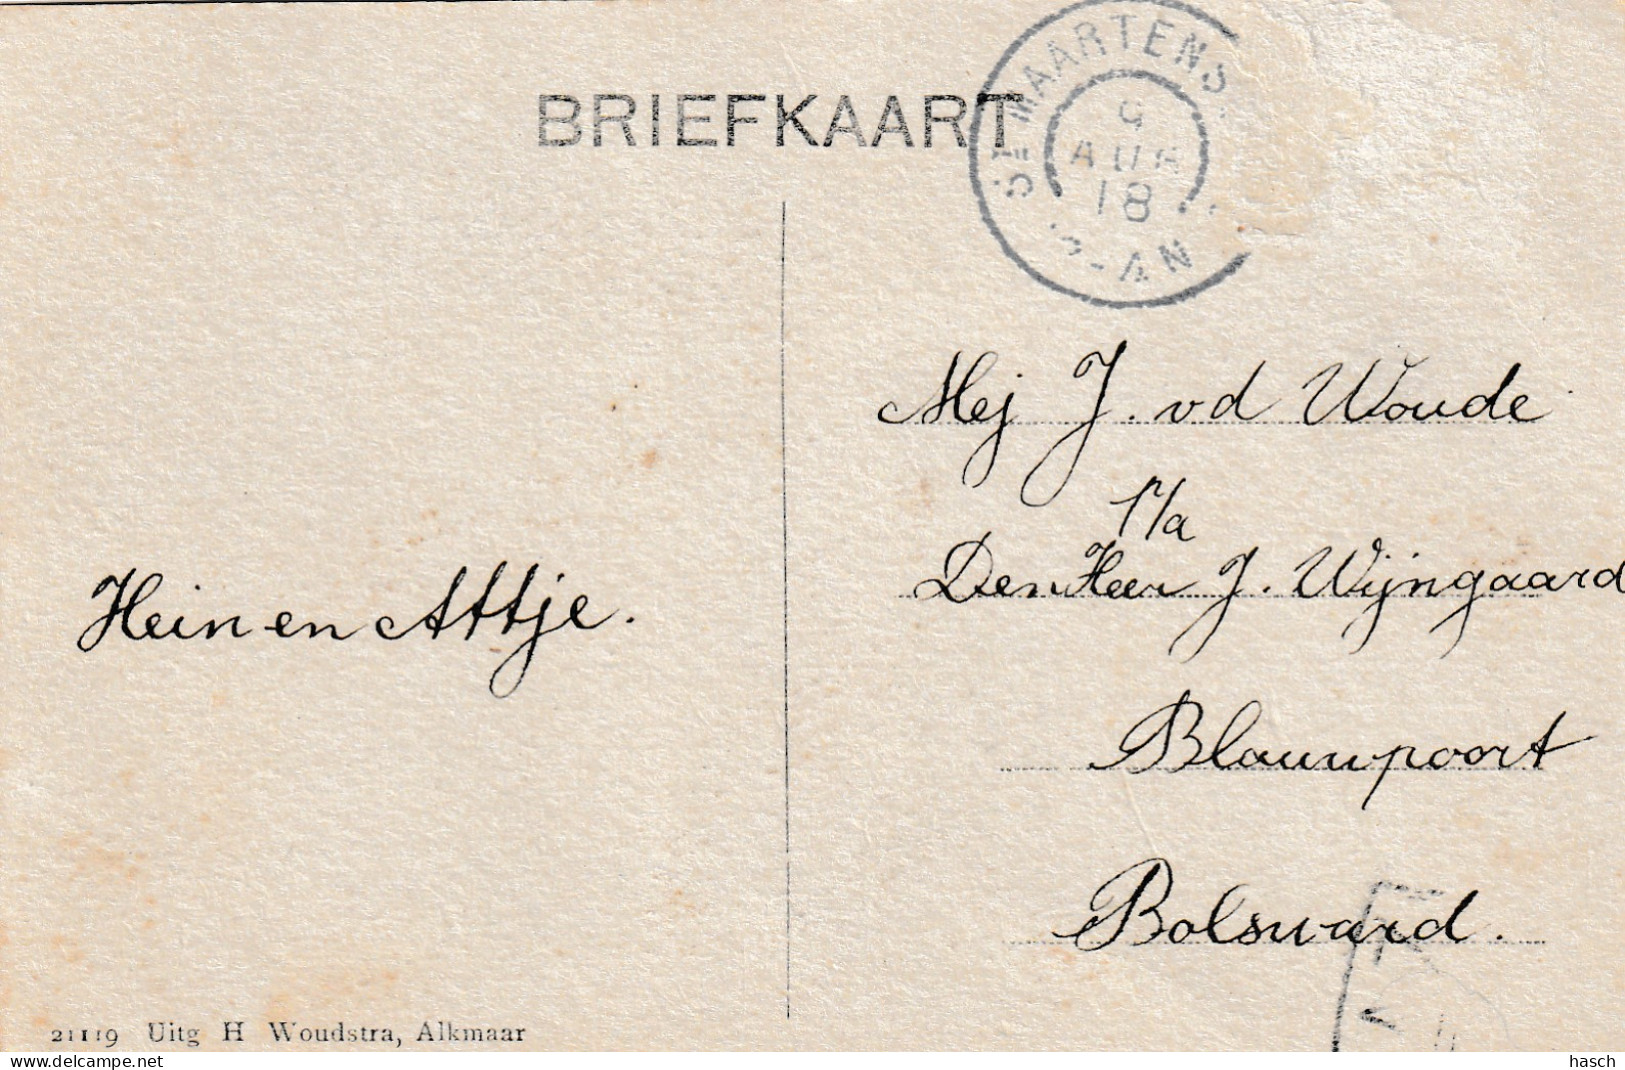 BRIEFKAART
ST MAARTENS
AUG
18
Mej J. vd Woude
p/a
Den Heer J. Wijngaard
Blauwpoort
Bolsward.
Hein en Attje.
21119 Uitg H Woudstra, Alkmaar
delcampe.net
hasch